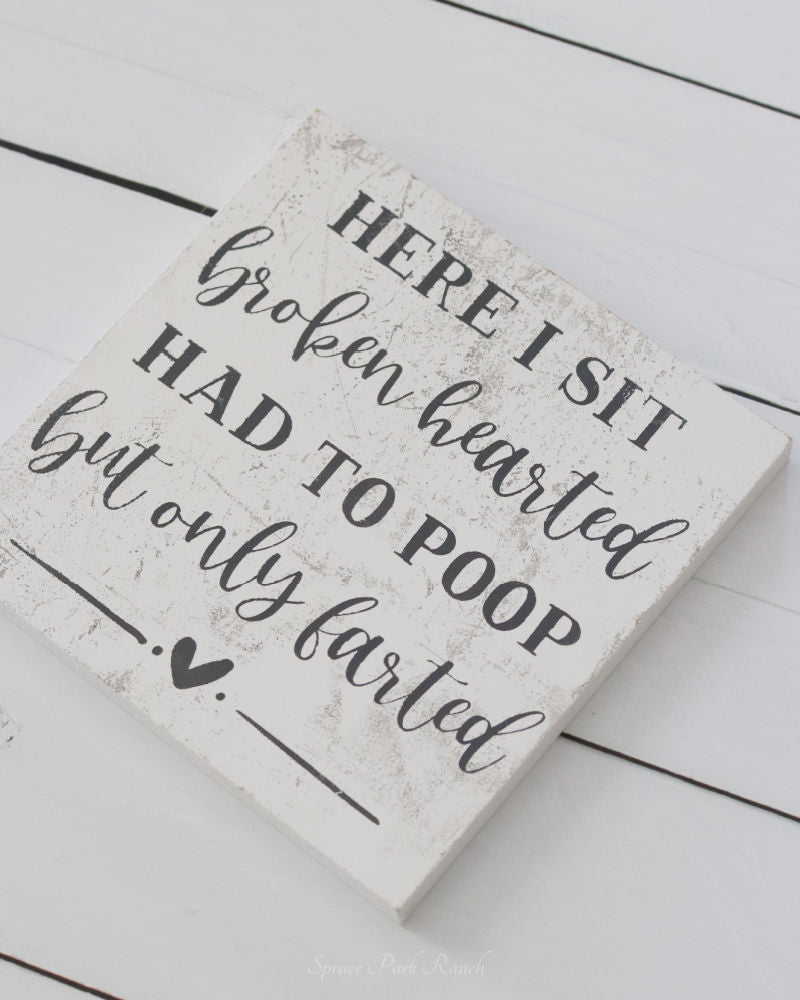 HERE I SIT
broken hearted
HAD TO POOP
but only farted
Spruce Park Ranch